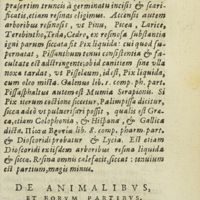 præsertim truncis à germinatu incisis & scari-
ficatis, etiam resinæ eliguntur. Accensis autem
arboribus resinosis, ut Pinu, Picea, Larice,
Terebintho, Tæda, Cedro, ex resinosa substantia
igni parum siccata fit Pix liquida: cui quod su-
pernatat, Pissanthinon tunc consistentia, & fa-
cultate est adstringente, ob id cantium sine ulla
noxa tardat, ut Pisselæum, id est, Pix liquida,
cum oleo mista. Galenus lib. 1. comp. ph. part.
Pissasphaltus autem est Mumia Serapionis. Si
Pix iterum coctione siccetur, Palimpissa dicitur,
sicca adeò ut pulverisari possit, qualis est Græ-
ca, etiam Colophonia, & Hispana, & Gallia
dicta.
lib. 8. comp. pharm. part.
& Dioscoridi probatur & Lycia. Est etiam
Dioscoridi existdem arboribus resina liquida
& sicca. Resina omnis calefacit, siccat: tenuium
est partium, magis minus.
DE ANIMALIBVS,
ET EORVM PARTIBVS,